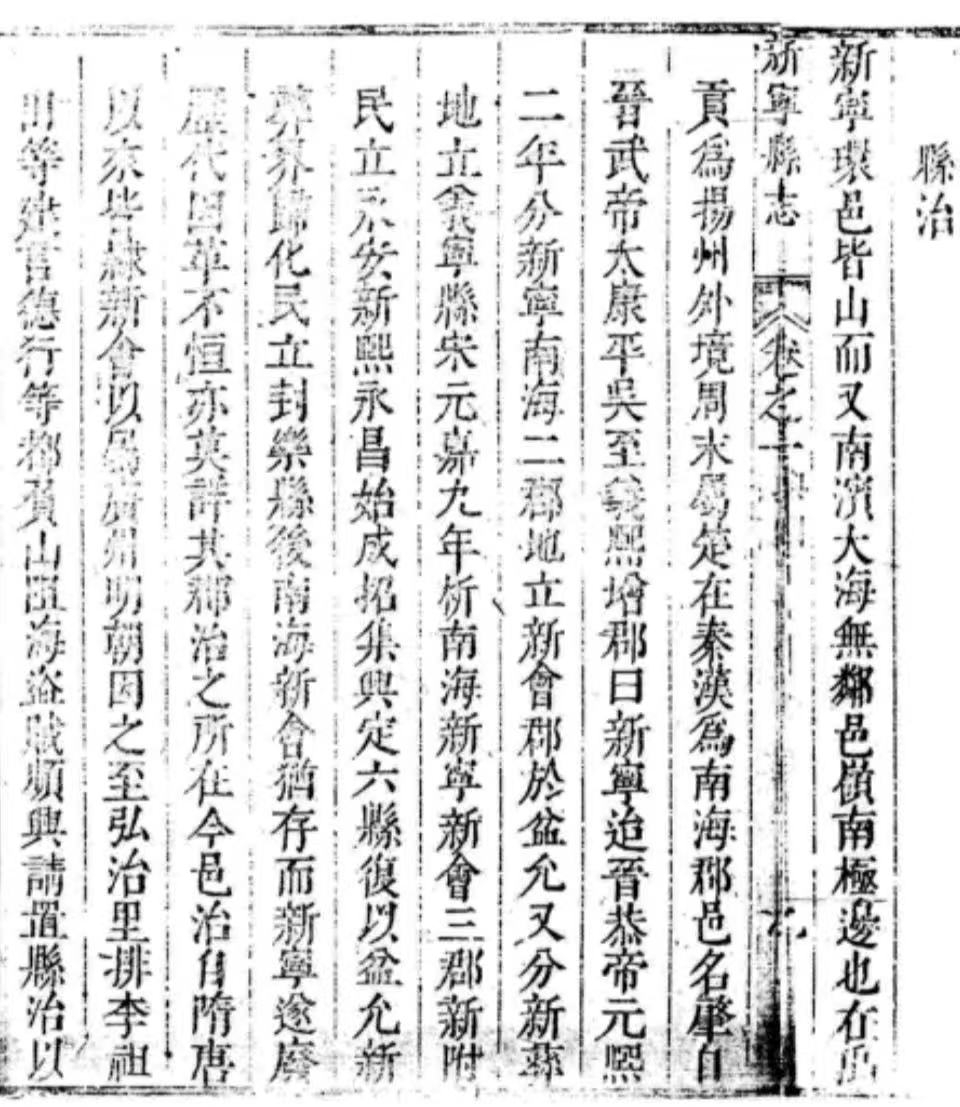 縣治
新寧環邑皆山而又南濱大海無鄰邑嶺南極邊也在禹
新寧縣志 卷之一
貢為揚州外境周末屬楚在秦漢為南海郡邑名肇自
晉武帝太康平吳至義熙增郡曰新寧迨晉恭帝元熙
二年分新寧南海二郡地立新會郡於盆允又分新
地立義寧縣宋元嘉九年析南海新寧新會三郡新附
民立永安新熙永昌始成招集興定六縣復以盆允新
界歸化民立封樂縣後南海新會猶存而新寧遂廢
歷代因革不恒亦莫詳其郡治之所在今邑治自隋唐
以來皆隸新會以屬廣州明朝因之至弘治里排李祖
等建言德行等都負山阻海盜賊順興請置縣治以